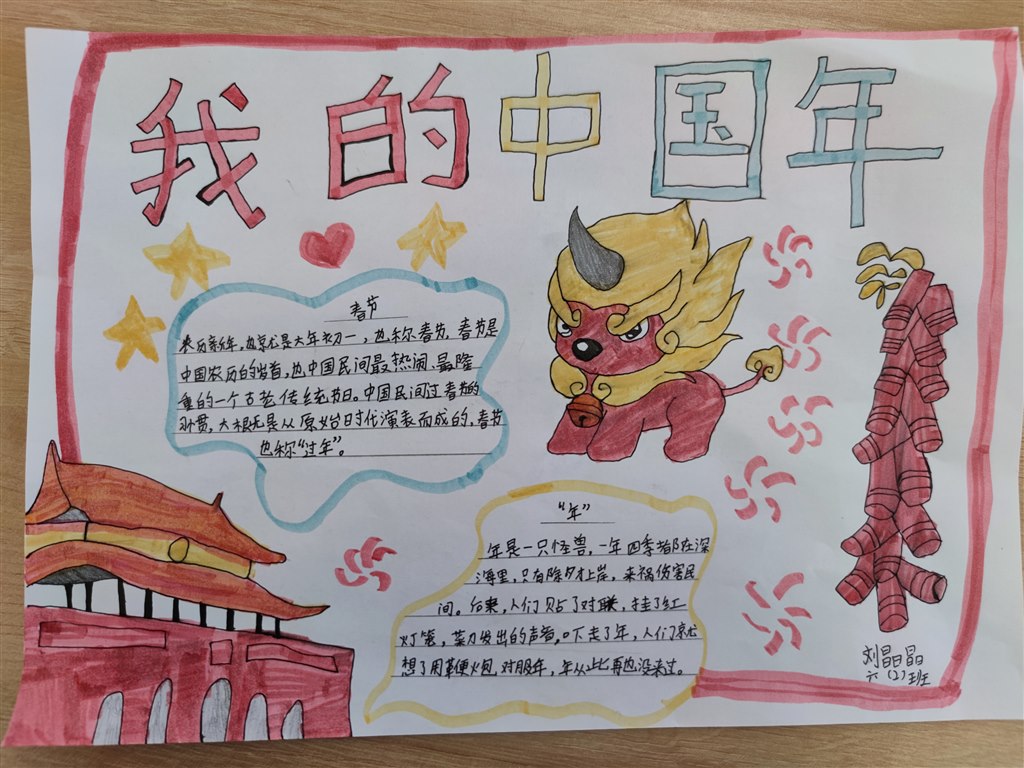 我的中国年
春节
农历新年,也就是大年初一,也称春节,春节是
中国农历的岁首,也中国民间最热闹、最隆
重的一个古老传统节日。中国民间过春节的
习惯,大概是从原始日时代演表而成的,春节
也称“过年”。
“年”
年是一只怪兽,一年四季都在深
海里,只有除夕才上岸,来祸伤害民
间。后来,人们贴了对联,挂了红
灯笼,菜刀发出的声音。吓走了年,人们就
想了用鞭火炮对服年,年从此再也没来过。
刘晶晶
六(2)班